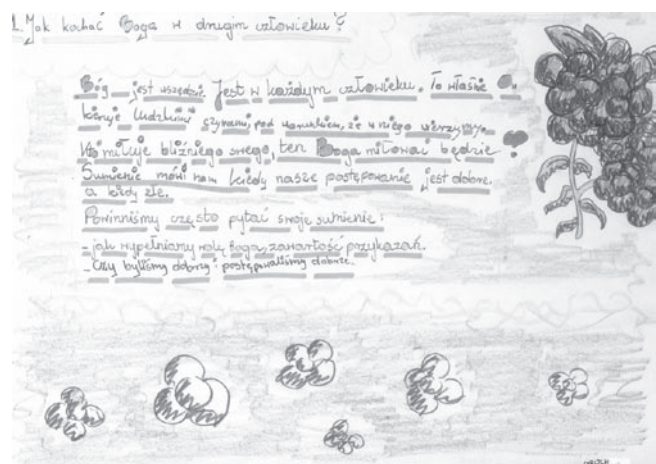 1. Jak kochać Boga w drugim człowieku?
Bóg jest wszędzie. Jest w każdym człowieku. To właśnie On
kieruje ludzkimi czynami, pod warunkiem, że w niego wierzymy.
Kto miłuje bliźniego swego, ten Boga miłować będzie!
Sumienie mówi nam kiedy nasze postępowanie jest dobre,
a kiedy złe.
Powinniśmy często pytać swoje sumienie:
- jak wypełniamy rolę Boga, zawartość przykazań.
- Czy byliśmy dobrzy i postępowaliśmy dobrze.